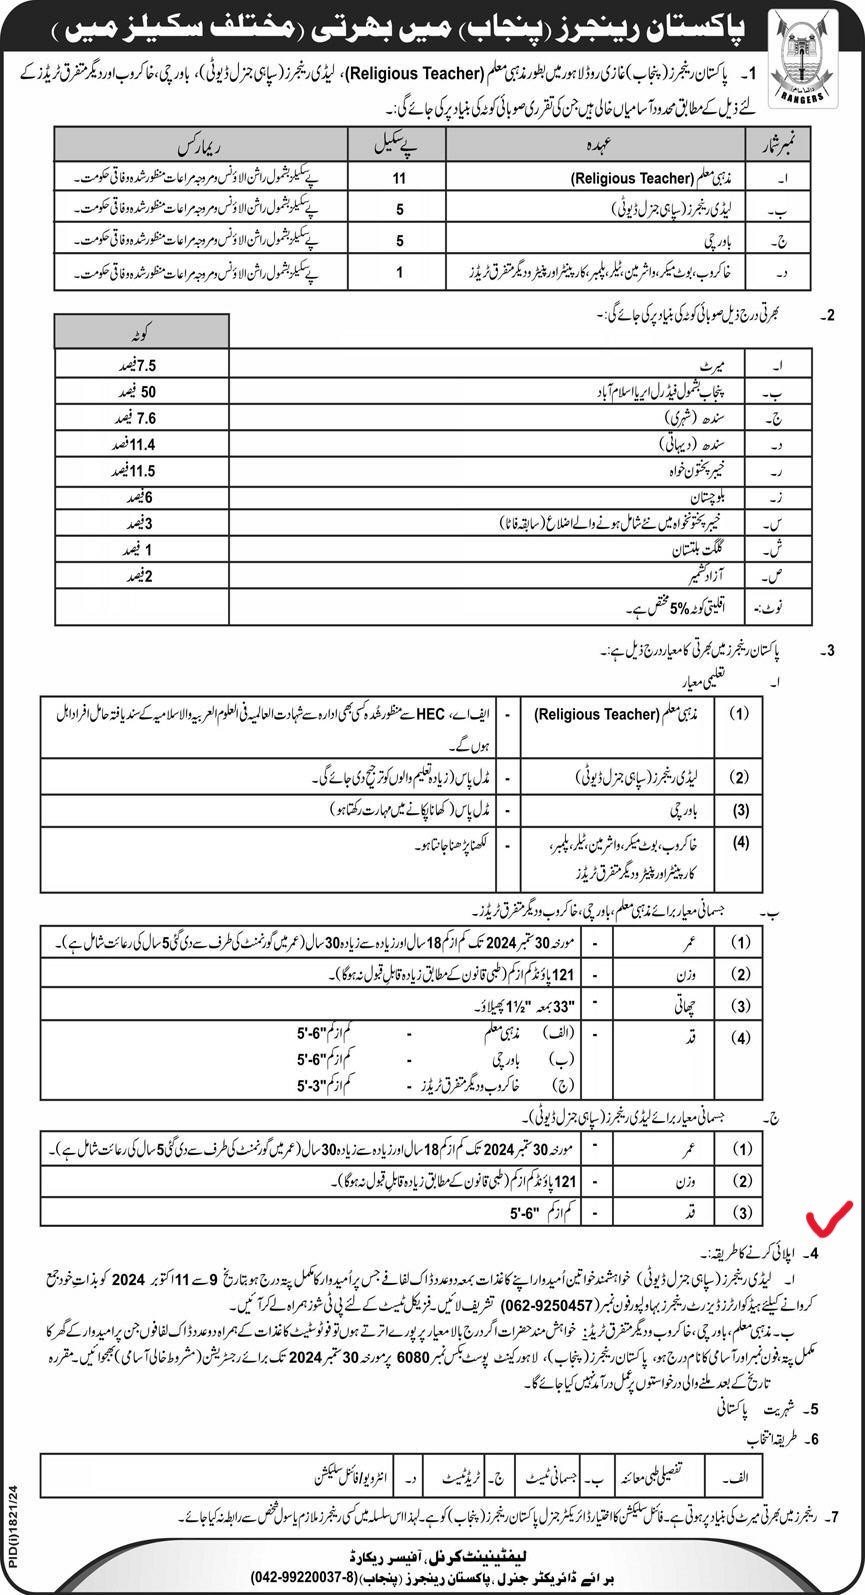 پاکستان رینجرز (پنجاب) میں بھرتی (مختلف سکیلز میں)
RANGERS
1۔ پاکستان رینجرز (پنجاب) غازی روڈ لاہور میں بطور مذہبی معلم (Religious Teacher)، لیڈی رینجرز (سپاہی جنرل ڈیوٹی)، باورچی، خاکروب اور دیگر متفرق ٹریڈز کے
لئے ذیل کے مطابق محدود آسامیاں خالی ہیں جن کی تقرری صوبائی کوٹہ کی بنیاد پر کی جائے گی:۔
نمبر شمار عہدہ پے سکیل ریمارکس
ا۔ مذہبی معلم (Religious Teacher) 11 پے سکیلز بشمول راشن الاؤنس و مروجہ مراعات منظور شدہ وفاقی حکومت۔
ب۔ لیڈی رینجرز (سپاہی جنرل ڈیوٹی) 5 پے سکیلز بشمول راشن الاؤنس و مروجہ مراعات منظور شدہ وفاقی حکومت۔
ج۔ باورچی 5 پے سکیلز بشمول راشن الاؤنس و مروجہ مراعات منظور شدہ وفاقی حکومت۔
د۔ خاکروب، بوٹ میکر، واشر مین، ٹیلر، پلمبر، کارپینٹر اور پینٹر و دیگر متفرق ٹریڈز 1 پے سکیلز بشمول راشن الاؤنس و مروجہ مراعات منظور شدہ وفاقی حکومت۔
2۔ بھرتی درج ذیل صوبائی کوٹہ کی بنیاد پر کی جائے گی:۔
کوٹہ
ا۔ میرٹ 7.5 فیصد
ب۔ پنجاب بشمول فیڈرل ایریا اسلام آباد 50 فیصد
ج۔ سندھ (شہری) 7.6 فیصد
د۔ سندھ (دیہاتی) 11.4 فیصد
ر۔ خیبر پختون خواہ 11.5 فیصد
ز۔ بلوچستان 6 فیصد
س۔ خیبر پختونخواہ میں نئے شامل ہونے والے اضلاع (سابقہ فاٹا) 3 فیصد
ش۔ گلگت بلتستان 1 فیصد
ص۔ آزاد کشمیر 2 فیصد
نوٹ:- اقلیتی کوٹہ 5% مختص ہے۔
3۔ پاکستان رینجرز میں بھرتی کا معیار درج ذیل ہے:۔
ا۔ تعلیمی معیار
(1) مذہبی معلم (Religious Teacher) - ایف اے، HEC سے منظور شدہ کسی بھی ادارہ سے شہادت العالمیہ فی العلوم العربیہ والاسلامیہ کے سند یافتہ حامل افراد اہل
ہوں گے۔
(2) لیڈی رینجرز (سپاہی جنرل ڈیوٹی) - مڈل پاس (زیادہ تعلیم والوں کو ترجیح دی جائے گی)۔
(3) باورچی - مڈل پاس (کھانا پکانے میں مہارت رکھتا ہو)
(4) خاکروب، بوٹ میکر، واشر مین، ٹیلر، پلمبر، - لکھنا پڑھنا جانتا ہو۔
کارپینٹر اور پینٹر و دیگر متفرق ٹریڈز
ب۔ جسمانی معیار برائے مذہبی معلم، باورچی، خاکروب و دیگر متفرق ٹریڈز۔
(1) عمر - مورخہ 30 ستمبر 2024 تک کم از کم 18 سال اور زیادہ سے زیادہ 30 سال (عمر میں گورنمنٹ کی طرف سے دی گئی 5 سال کی رعائت شامل ہے)۔
(2) وزن - 121 پاؤنڈ کم از کم (طبی قانون کے مطابق زیادہ قابل قبول نہ ہوگا)۔
(3) چھاتی - 33" بمعہ 1½" پھیلاؤ۔
(4) قد - (الف) مذہبی معلم - کم از کم 5'-6"
(ب) باورچی - کم از کم 5'-6"
(ج) خاکروب و دیگر متفرق ٹریڈز - کم از کم 5'-3"
ج۔ جسمانی معیار برائے لیڈی رینجرز (سپاہی جنرل ڈیوٹی)۔
(1) عمر - مورخہ 30 ستمبر 2024 تک کم از کم 18 سال اور زیادہ سے زیادہ 30 سال (عمر میں گورنمنٹ کی طرف سے دی گئی 5 سال کی رعائت شامل ہے)۔
(2) وزن - 121 پاؤنڈ کم از کم (طبی قانون کے مطابق زیادہ قابل قبول نہ ہوگا)۔
(3) قد - کم از کم 5'-6"
4۔ اپلائی کرنے کا طریقہ:۔
ا۔ لیڈی رینجرز (سپاہی جنرل ڈیوٹی) خواہشمند خواتین امیدوار اپنے کاغذات بمعہ دو عدد ڈاک لفافے جس پر امیدوار کا مکمل پتہ درج ہو بتاریخ 9 سے 11 اکتوبر 2024 کو بذات خود جمع
کروانے کیلئے ہیڈ کوارٹرز ڈیزرٹ رینجرز بہاولپور فون نمبر (062-9250457) تشریف لائیں۔ فزیکل ٹیسٹ کے لئے پی ٹی شوز ہمراہ لے کر آئیں۔
ب۔ مذہبی معلم، باورچی، خاکروب و دیگر متفرق ٹریڈز: خواہش مند حضرات اگر درج بالا معیار پر پورے اترتے ہوں تو فوٹو سٹیٹ کاغذات کے ہمراہ دو عدد ڈاک لفافوں جن پر امیدوار کے گھر کا
مکمل پتہ، فون نمبر اور آسامی کا نام درج ہو، پاکستان رینجرز (پنجاب)، لاہور کینٹ پوسٹ بکس نمبر 6080 پر مورخہ 30 ستمبر 2024 تک برائے رجسٹریشن (مشروط خالی آسامی) بھجوائیں۔ مقررہ
تاریخ کے بعد ملنے والی درخواستوں پر عمل درآمد نہیں کیا جائے گا۔
5۔ شہریت پاکستانی
6۔ طریقہ انتخاب
الف۔ تفصیلی طبی معائنہ ب۔ جسمانی ٹیسٹ ج۔ ٹریڈ ٹیسٹ د۔ انٹرویو/فائنل سلیکشن
7۔ رینجرز میں بھرتی میرٹ کی بنیاد پر ہوتی ہے۔ فائنل سلیکشن کا اختیار ڈائریکٹر جنرل پاکستان رینجرز (پنجاب) کو ہے۔ لہٰذا اس سلسلہ میں کسی رینجرز ملازم یا سول شخص سے رابطہ نہ کیا جائے۔
لیفٹیننٹ کرنل، آفیسر ریکارڈ
برائے ڈائریکٹر جنرل، پاکستان رینجرز (پنجاب) (042-99220037-8)
PID(i)1821/24